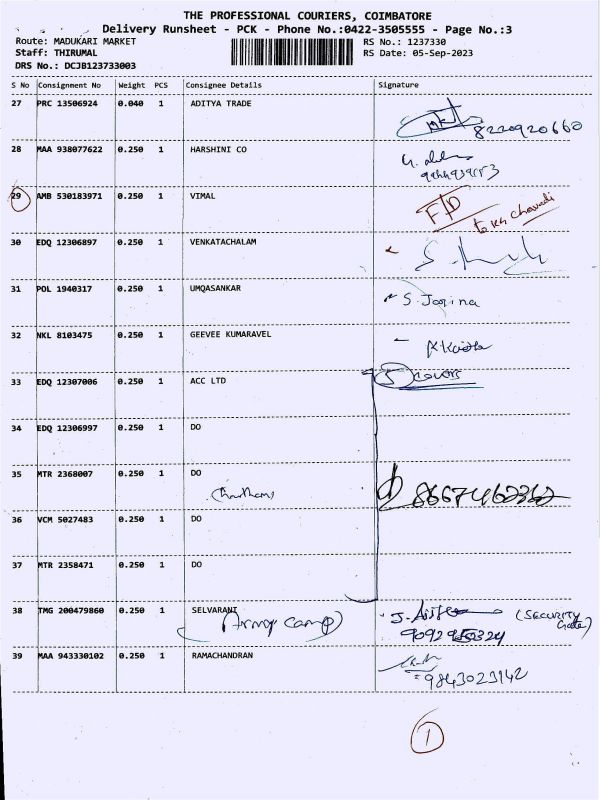 THE PROFESSIONAL COURIERS, COIMBATORE
Delivery Runsheet - PCK - Phone No.:0422-3505555 - Page No.:3
Route: MADUKARI MARKET
RS No.: 1237330
Staff: THIRUMAL
RS Date: 05-Sep-2023
DRS No.: DCJB123733003
S No Consignment No Weight PCS Consignee Details Signature
27 PRC 13506924 0.040 1 ADITYA TRADE
8220920660
28 MAA 938077622 0.250 1 HARSHINI CO
29 AMB 530183971 0.250 1 VIMAL F/D
30 EDQ 12306897 0.250 1 VENKATACHALAM
31 POL 1940317 0.250 1 UMQASANKAR S. Jarina
32 NKL 8103475 0.250 1 GEEVEE KUMARAVEL
33 EDQ 12307006 0.250 1 ACC LTD 5 covers
34 EDQ 12306997 0.250 1 DO
35 MTR 2368007 0.250 1 DO
36 VCM 5027483 0.250 1 DO
37 MTR 2358471 0.250 1 DO
38 TMG 200479860 0.250 1 SELVARANI (SECURITY Gate)
(Army camp)
39 MAA 943330102 0.250 1 RAMACHANDRAN
9843023142
1